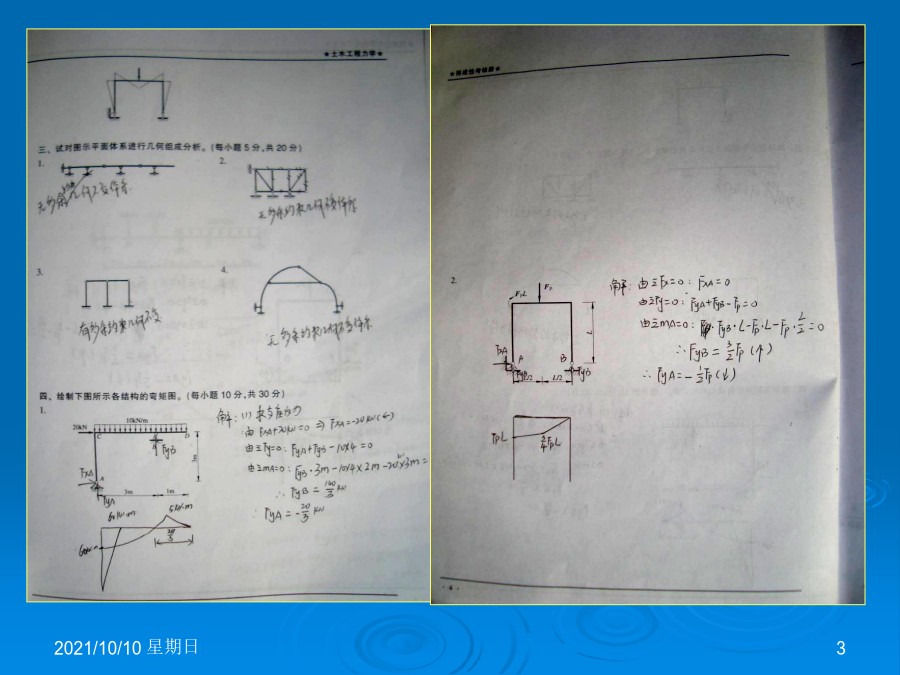 ★土木工程力学★
三、试对图示平面体系进行几何组成分析。(每小题5分,共20分)
1.
2.
无多余几何不变体系
无多余约束几何不变体系
3.
4.
有多余约束几何不变
无多余约束几何不变体系
四、绘制下图所示各结构的弯矩图。(每小题10分,共30分)
1.
20kN
10kN/m
C
D
FyB
3m
FxA
A
FyA
3m
1m
解:(1)求支座反力
由FxA+20kN=0 ⇒ FxA=-20kN(←)
由ΣFy=0: FyA+FyB-10×4=0
由ΣmA=0: FyB·3m-10×4×2m-20×3m=
∴FyB=140/3 kN
∴FyA=-20/3 kN
60kN·m
5kN·m
20/3
★形成性考核册★
2.
FpL
Fp
L
FxA
A
B
FyA
FyB
L/2
L/2
解:由ΣFx=0: FxA=0
由ΣFy=0: FyA+FyB-Fp=0
由ΣmA=0: FyB·L-Fp·L-Fp·L/2=0
∴FyB=3/2Fp(↑)
∴FyA=-1/2Fp(↓)
FpL
· 4 ·
2021/10/10 星期日
3